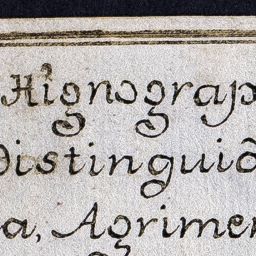 Hignograp
distinguid
a, Agrimen